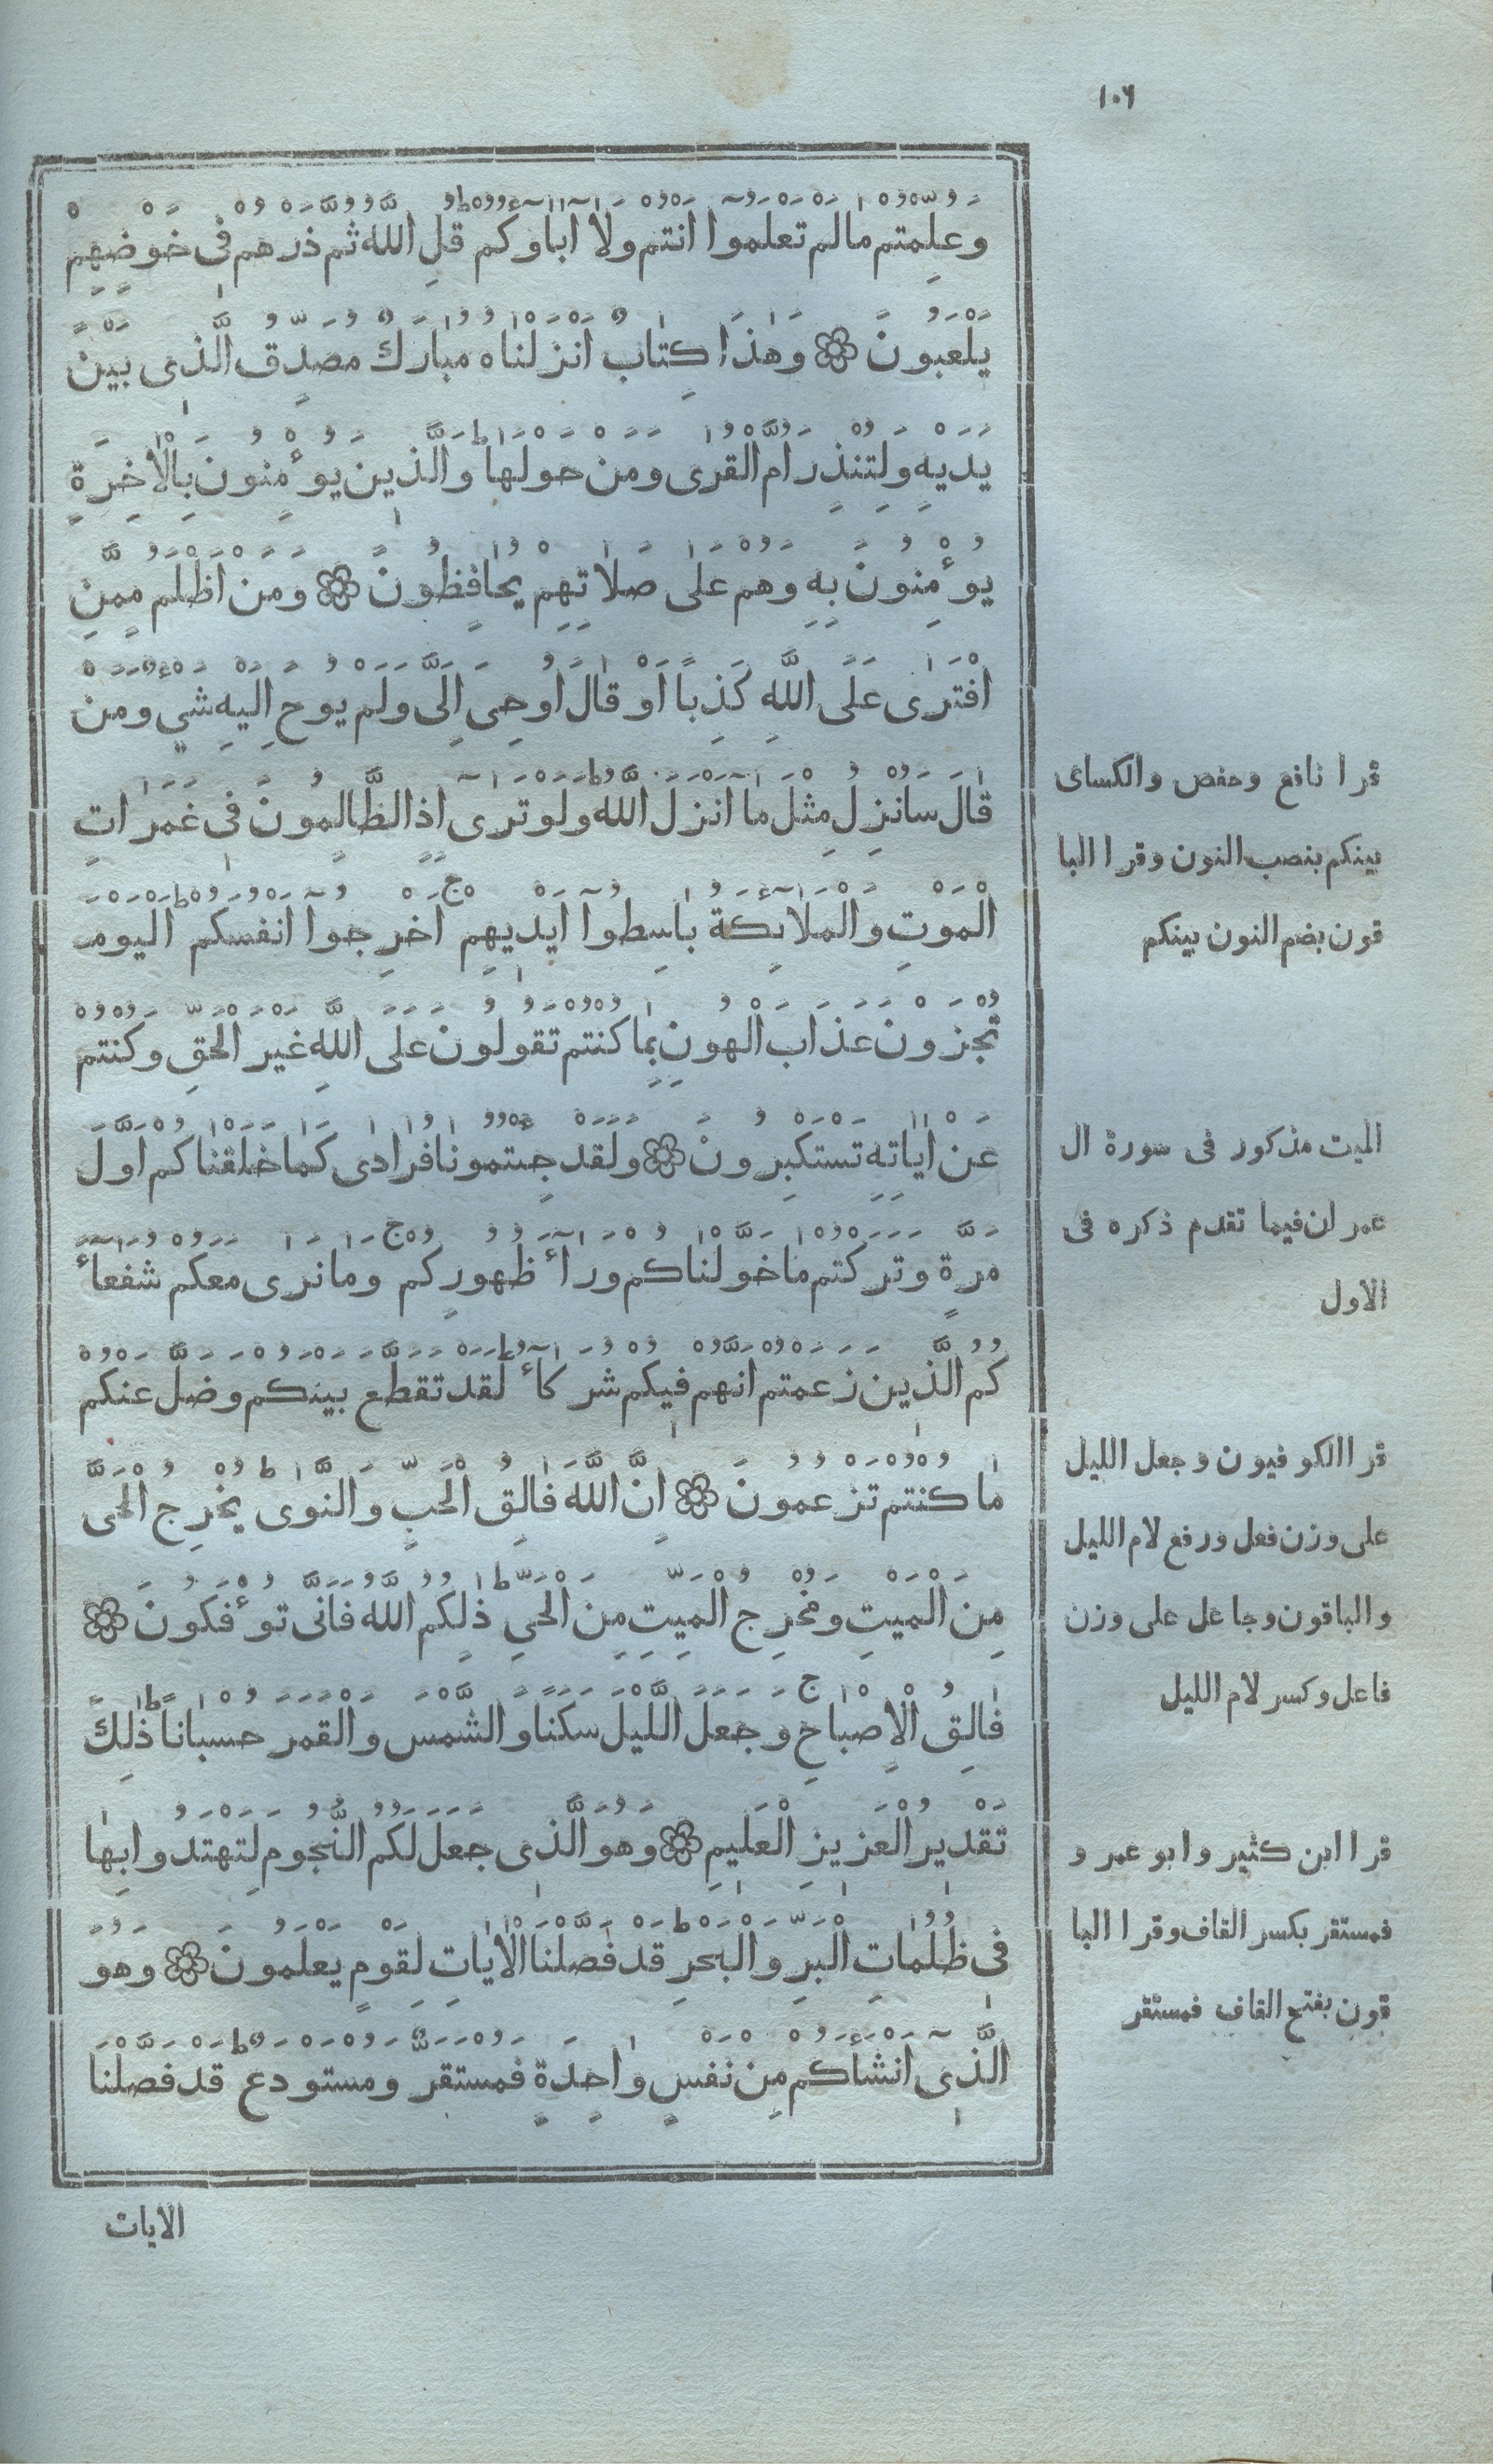 ١٠٦
وعلمتم مالم تعلموا انتم ولا اباوكم قل الله ثم ذرهم فى خوضهم
يلعبون وهذا كتاب انزلناه مبارك مصدق الذى بين
يديه ولتنذر ام القرى ومن حولها والذين يوٴمنون بالاخرة
يوٴمنون به وهم على صلاتهم يحافظون ومن اظلم ممن
افترى على الله كذبا او قال اوحى الى ولم يوح اليه شي ومن
قال سانزل مثل ما انزل الله ولو ترى اذ الظالمون فى غمرات
الموت والملائكة باسطوا ايديهم اخرجوا انفسكم اليوم
تجزون عذاب الهون بما كنتم تقولون على الله غير الحق وكنتم
عن اياته تستكبرون ولقد جئتمونا فرادى كما خلقناكم اول
مرة وتركتم ما خولناكم وراٴ ظهوركم وما نرى معكم شفعاٴ
كم الذين زعمتم انهم فيكم شركاٴ لقد تقطع بينكم وضل عنكم
ما كنتم تزعمون ان الله فالق الحب والنوى يخرج الحى
من الميت ومخرج الميت من الحي ذلكم الله فانى توٴفكون
فالق الاصباح وجعل الليل سكنا والشمس والقمر حسبانا ذلك
تقدير العزيز العليم وهو الذى جعل لكم النجوم لتهتدوا بها
فى ظلمات البر والبحر قد فصلنا الايات لقوم يعلمون وهو
الذى انشأكم من نفس واحدة فمستقر ومستودع قد فصلنا
الايات
قرا نافع وحفص والكساى
بينكم بنصب النون وقرا البا
قون بضم النون بينكم
الميت مذكور فى سورة ال
عمران فيما تقدم ذكره فى
الاول
قرا الكوفيون وجعل الليل
على وزن فعل ورفع لام الليل
والباقون وجاعل على وزن
فاعل وكسر لام الليل
قرا ابن كثير وابو عمرو
فمستقر بكسر القاف وقرا البا
قون بفتح القاف فمستقر